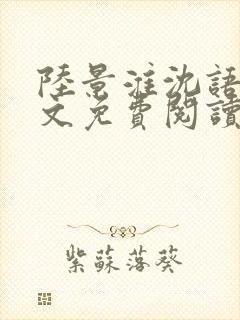 陸景淮沈語
文免費閱讀
紫蘇落葵